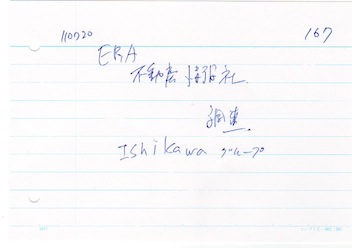 110720
167
ERA
不動産情報社
調査
Ishikawa グループ